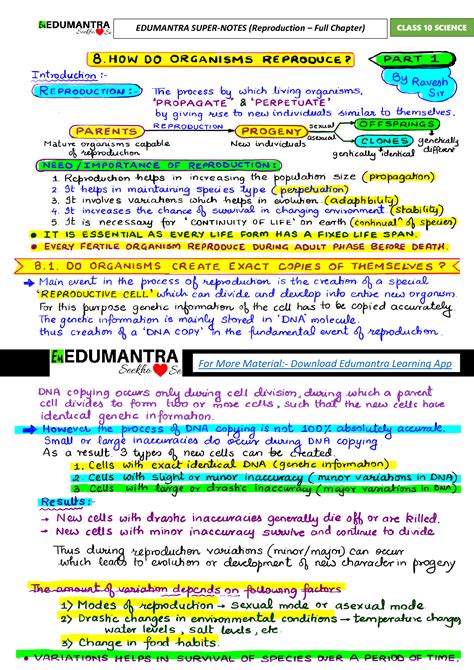 EDUMANTRA
Seekho
EDUMANTRA SUPER-NOTES (Reproduction – Full Chapter)
CLASS 10 SCIENCE
8. HOW DO ORGANISMS REPRODUCE?
PART 1
By Ravesh Sir
Introduction :-
REPRODUCTION :- The process by which living organisms,
'PROPAGATE' & 'PERPETUATE'
by giving rise to new individuals similar to themselves.
PARENTS REPRODUCTION PROGENY sexual OFFSPRINGS
asexual CLONES genetically different
Mature organisms capable of reproduction
New individuals
genetically identical
NEED / IMPORTANCE OF REPRODUCTION :
1. Reproduction helps in increasing the population size (propagation)
2. It helps in maintaining species type (perpetuation)
3. It involves variations which helps in evolution (adaptability)
4. It increases the chance of survival in changing environment (stability)
5. It is necessary for 'CONTINUITY OF LIFE' on earth (continual of species)
• IT IS ESSENTIAL AS EVERY LIFE FORM HAS A FIXED LIFE SPAN.
• EVERY FERTILE ORGANISM REPRODUCE DURING ADULT PHASE BEFORE DEATH.
8.1. DO ORGANISMS CREATE EXACT COPIES OF THEMSELVES?
→ Main event in the process of reproduction is the creation of a special
'REPRODUCTIVE CELL' which can divide and develop into entire new organism.
For this purpose genetic information of the cell has to be copied accurately.
The genetic information is mainly stored in 'DNA' molecule.
thus creation of a 'DNA COPY' in the fundamental event of reproduction.
EDUMANTRA
Seekho
For More Material:- Download Edumantra Learning App
DNA copying occurs only during cell division, during which a parent
cell divides to form two or more cells, such that the new cells have
identical genetic information.
→ However the process of DNA copying is not 100% absolutely accurate.
Small or large inaccuracies do occur during DNA copying
As a result 3 types of new cells can be created.
1. Cells with exact identical DNA (genetic information)
2. Cells with slight or minor inaccuracy (minor variations in DNA)
3. Cells with large or drastic inaccuracy (major variations in DNA)
Results :-
→ New cells with drastic inaccuracies generally die off or are killed.
→ New cells with minor inaccuracy survive and continue to divide
Thus during reproduction variations (minor/major) can occur
which leads to evolution or development of new character in progeny
The amount of variation depends on following factors
1) Modes of reproduction → sexual mode or asexual mode
2) Drastic changes in environmental conditions → temperature changes,
water levels, salt levels, etc.
3) Change in food habits.
• VARIATIONS HELPS IN SURVIVAL OF SPECIES OVER A PERIOD OF TIME